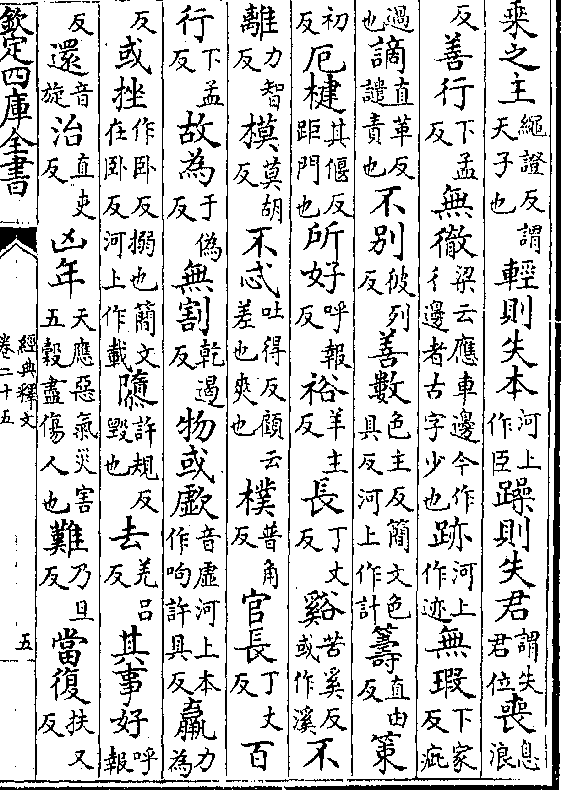 乗之主繩證反謂天子也輕則失本河上作臣躁則失君謂失君位喪息浪
反善行下孟反無徹梁云應車邊今作彳邊者古字少也跡河上作迹無瑕下家反疵
過也謫直革反譴責也不别彼列反善數色主反簡文色具反河上作計籌直由反策
初反厄楗其偃反距門也所好呼報反裕羊主反長丁丈反谿苦奚反或作溪不
離力智反模莫胡反不忒吐得反顧云差也爽也樸普角反官長丁丈反百
行下孟反故為于偽反無割乾遏反物或歔音虛河上本作呴許具反羸力為
反或挫作卧反搦也簡文在卧反河上作載隳許規反毀也去羌呂反其事好呼報
反還音旋治直吏反凶年天應惡氣災害五穀盡傷人也難乃旦反當復扶又反
欽定四庫全書
經典釋文
卷二十五
五